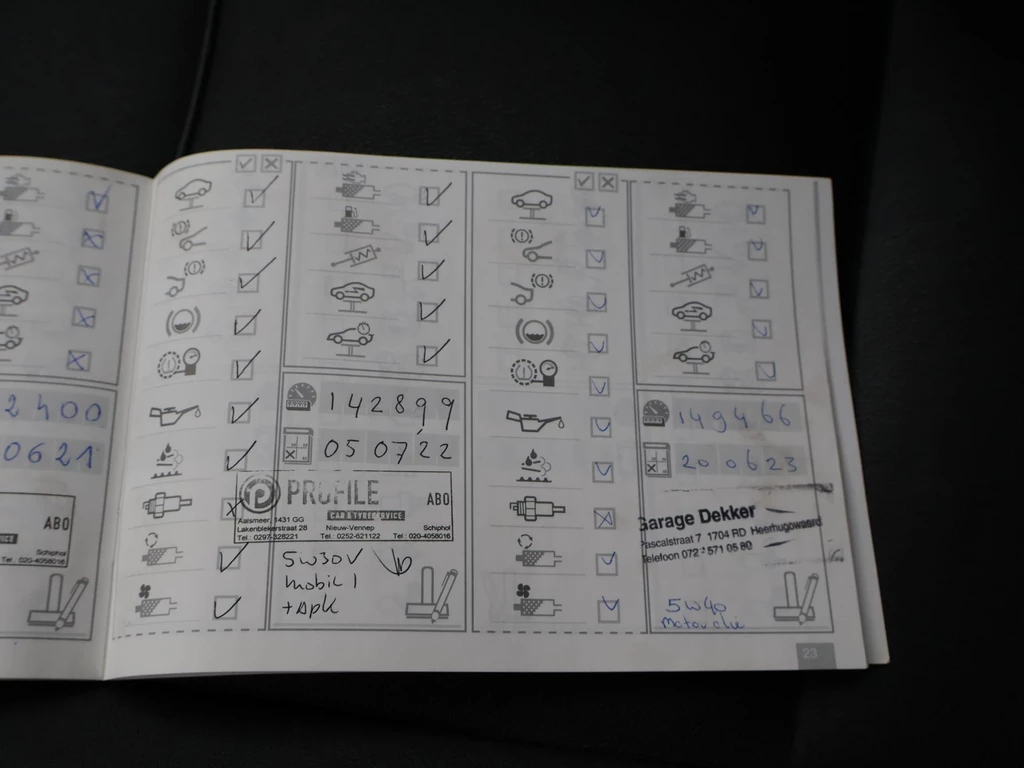 2400
0621
ABO
Schiphol
Tel.: 020-4058016
142899
050722
PROFILE
ABO
CAR & TYRESERVICE
Aalsmeer, 1431 GG
Lakenblekerstraat 28
Tel.: 0297-328221
Nieuw-Vennep
Tel.: 0252-621122
Schiphol
Tel.: 020-4058016
5W30V
mobil 1
+ APK
149466
200623
Garage Dekker
Pascalstraat 7 1704 RD Heerhugowaard
Telefoon 072 - 571 05 80
5W40
Motor olie
23